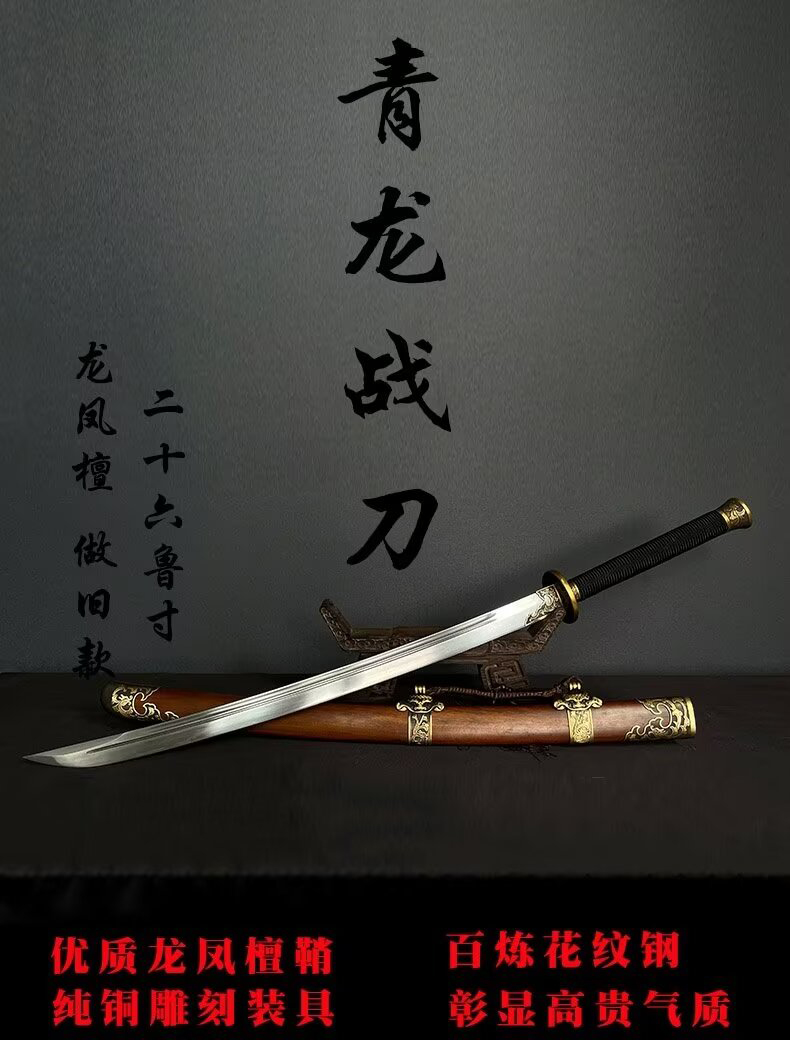 青龙战刀
二十六鲁寸
龙凤檀 做旧款
优质龙凤檀鞘
纯铜雕刻装具
百炼花纹钢
彰显高贵气质